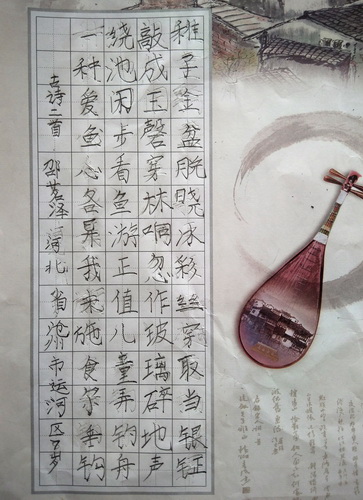 稚子金盆脱晓冰彩丝穿取当银钲
敲成玉磬穿林响忽作玻璃碎地声
绕池闲步看鱼游正值儿童弄钓舟
一种爱鱼心各异我来施食尔垂钩
古诗二首 邵茗泽 河北省沧州市运河区7岁